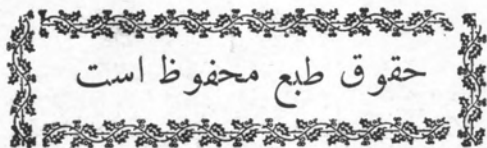 حقوق طبع محفوظ است